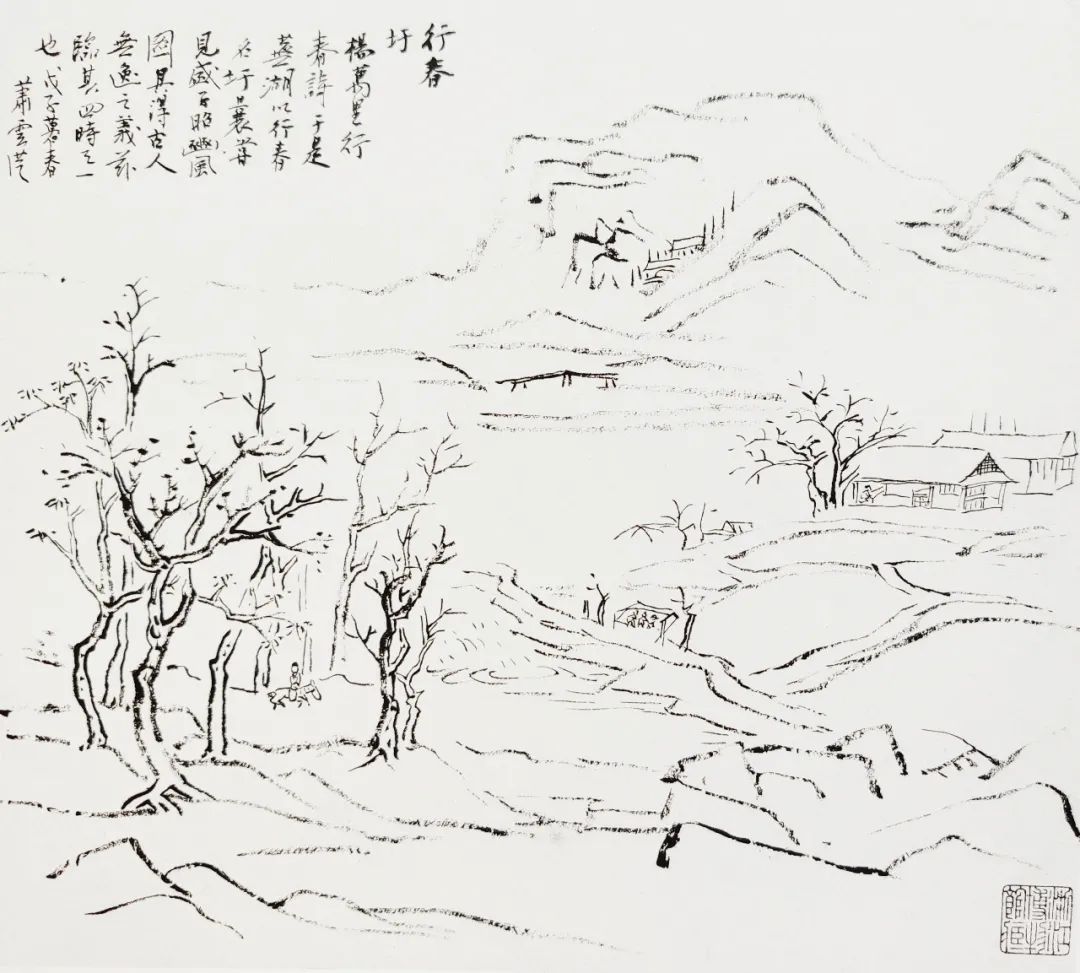 行春
圩
楊萬里行
春詩于是
蕪湖以行春
名圩曩甞
見盛子昭豳風
圖具得古人
無逸之義茲
臨其四時之一
也戊子暮春
蕭雲從
浙江
博物
館